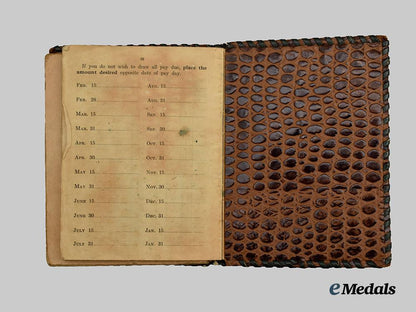 If you do not wish to draw all pay due, place the
amount desired opposite date of pay day.
Feb. 15 Aug. 15
Feb. 28 Aug. 31
Mar. 15 Sep. 15
Mar. 31 Sep. 30
Apr. 15 Oct. 15
Apr. 30 Oct. 31
May 15 Nov. 15
May 31 Nov. 30
June 15 Dec. 15
June 30 Dec. 31
July 15 Jan. 15
July 31 Jan. 31
eMedals